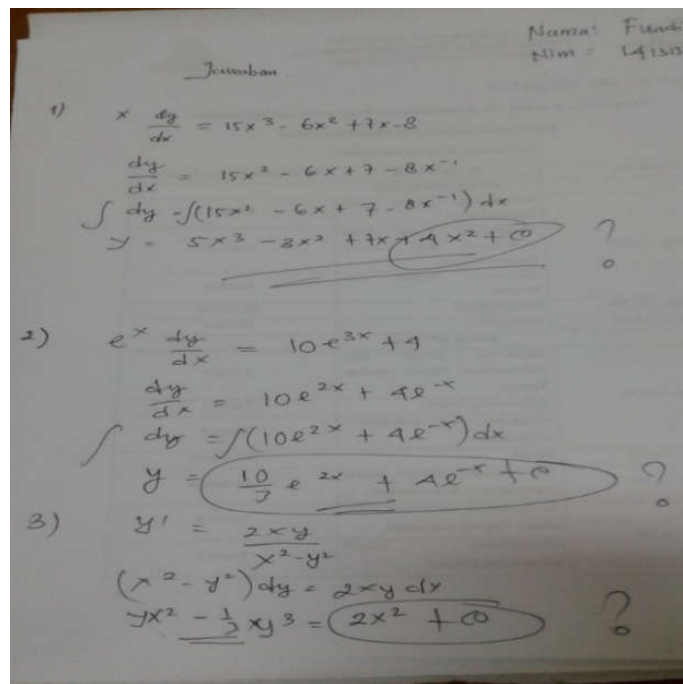 Nama: Fuadi
Nim = 141513
Jawaban
1) x dy/dx = 15x³ - 6x² + 7x - 8
dy/dx = 15x² - 6x + 7 - 8x⁻¹
∫ dy = ∫(15x² - 6x + 7 - 8x⁻¹) dx
y = 5x³ - 3x² + 7x + 4x² + C ?
2) eˣ dy/dx = 10e³ˣ + 4
dy/dx = 10e²ˣ + 4e⁻ˣ
∫ dy = ∫(10e²ˣ + 4e⁻ˣ) dx
y = 10/3 e²ˣ + 4e⁻ˣ + C ?
3) y' = 2xy / x² - y²
(x² - y²) dy = 2xy dx
yx² - 1/3 xy³ = 2x² + C ?